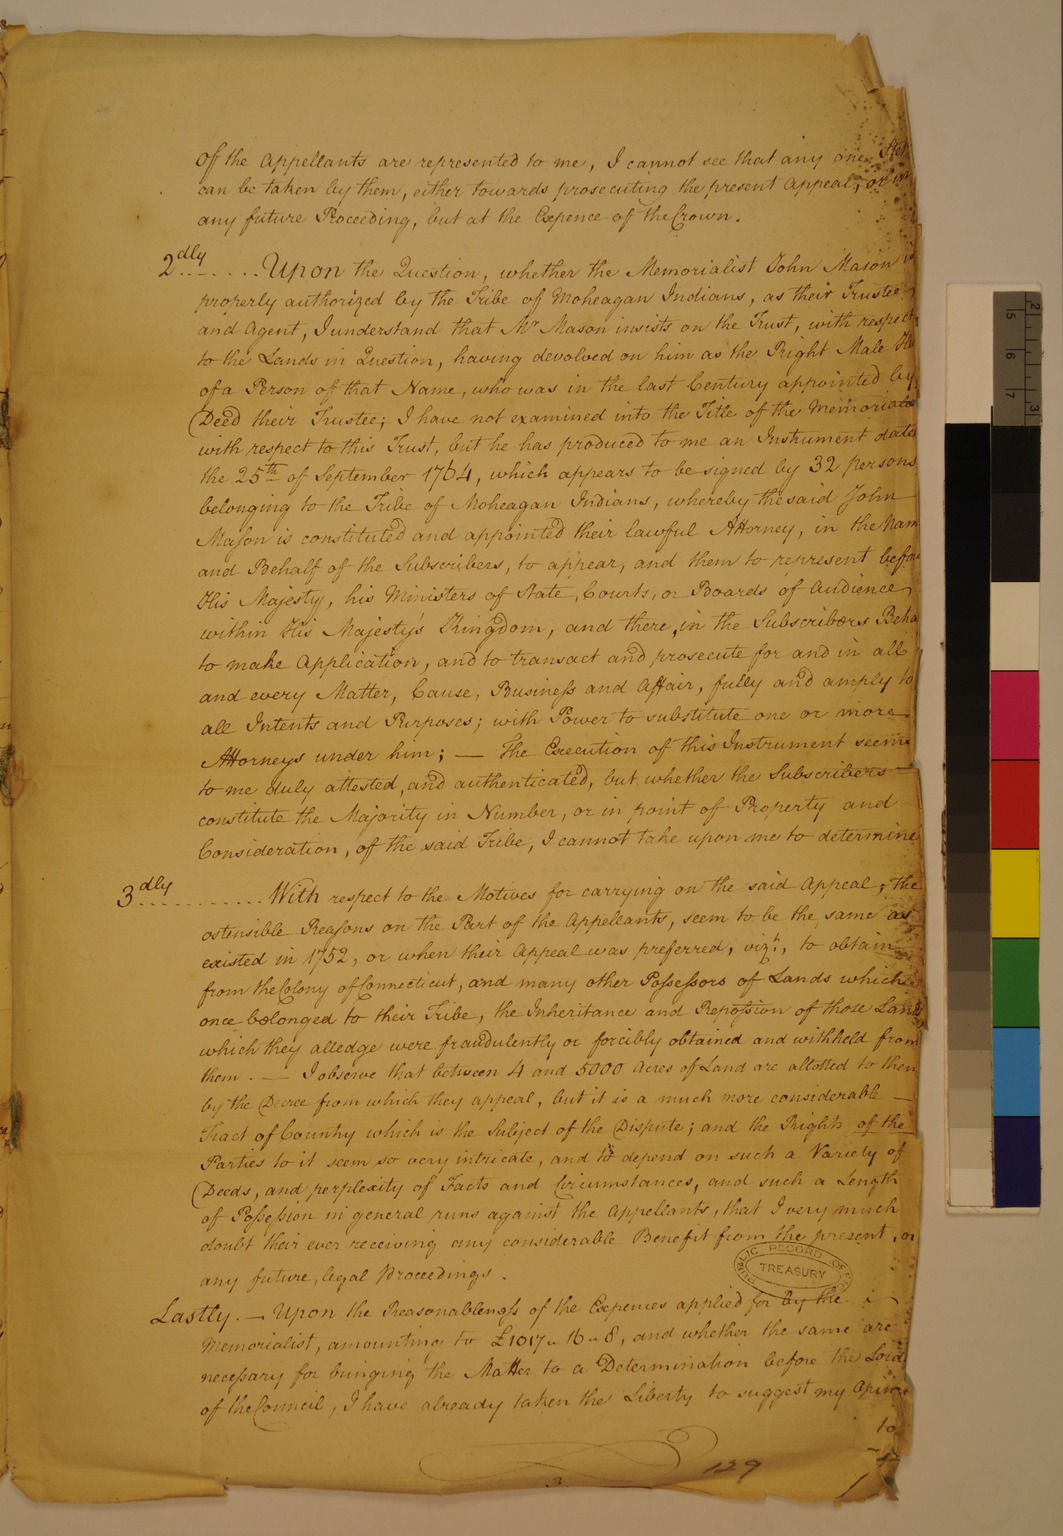 of the Appellants are represented to me, I cannot see that any one
can be taken by them, either towards prosecuting the present Appeal, or
any future Proceeding, but at the Expence of the Crown.
2dly ...... Upon the Question, whether the Memorialist John Mason is
properly authorized by the Tribe of Moheagan Indians, as their Trustee
and Agent, I understand that Mr Mason insists on the Trust, with respect
to the Lands in Question, having devolved on him as the Right Male
of a Person of that Name, who was in the last Century appointed by
Deed their Trustee; I have not examined into the Title of the Memorialist
with respect to this Trust, but he has produced to me an Instrument dated
the 25th of September 1764, which appears to be signed by 32 persons
belonging to the Tribe of Moheagan Indians, whereby the said John
Mason is constituted and appointed their lawful Attorney, in the Nam
and Behalf of the Subscribers, to appear, and them to represent before
His Majesty, his Ministers of State, Courts, or Boards of Audience
within His Majesty's Kingdom, and there, in the Subscribers Beha
to make Application, and to transact and prosecute for and in all
and every Matter, Cause, Business and Affair, fully and amply to
all Intents and Purposes; with Power to substitute one or more
Attorneys under him; — The Execution of this Instrument seems
to me duly attested, and authenticated, but whether the Subscribers
constitute the Majority in Number, or in point of Property and
Consideration, of the said Tribe, I cannot take upon me to determine
3dly ............ With respect to the Motives for carrying on the said Appeal, the
ostensible Reasons on the Part of the Appellants, seem to be the same as
existed in 1752, or when their Appeal was preferred, vizt, to obtain
from the Colony of Connecticut, and many other Possessors of Lands which
once belonged to their Tribe, the Inheritance and Repossion of those Lands
which they alledge were fraudulently or forcibly obtained and withheld from
them. — I observe that between 4 and 5000 Acres of Land are allotted to them
by the Decree from which they appeal, but it is a much more considerable —
Tract of Country which is the Subject of the Dispute; and the Rights of the
Parties to it seem so very intricate, and to depend on such a Variety of
Deeds, and perplexity of Facts and Circumstances, and such a Length
of Possession in general runs against the Appellants, that I very much
doubt their ever receiving any considerable Benefit from the present, or
any future, legal Proceedings.
PUBLIC RECORD OFFICE
TREASURY
Lastly. — Upon the Reasonableness of the Expences applied for by the
Memorialist, amounting to £1017 " 16 " 8, and whether the same are
necessary for bringing the Matter to a Determination before the Lords
of the Council, I have already taken the Liberty to suggest my Opinion
3
129